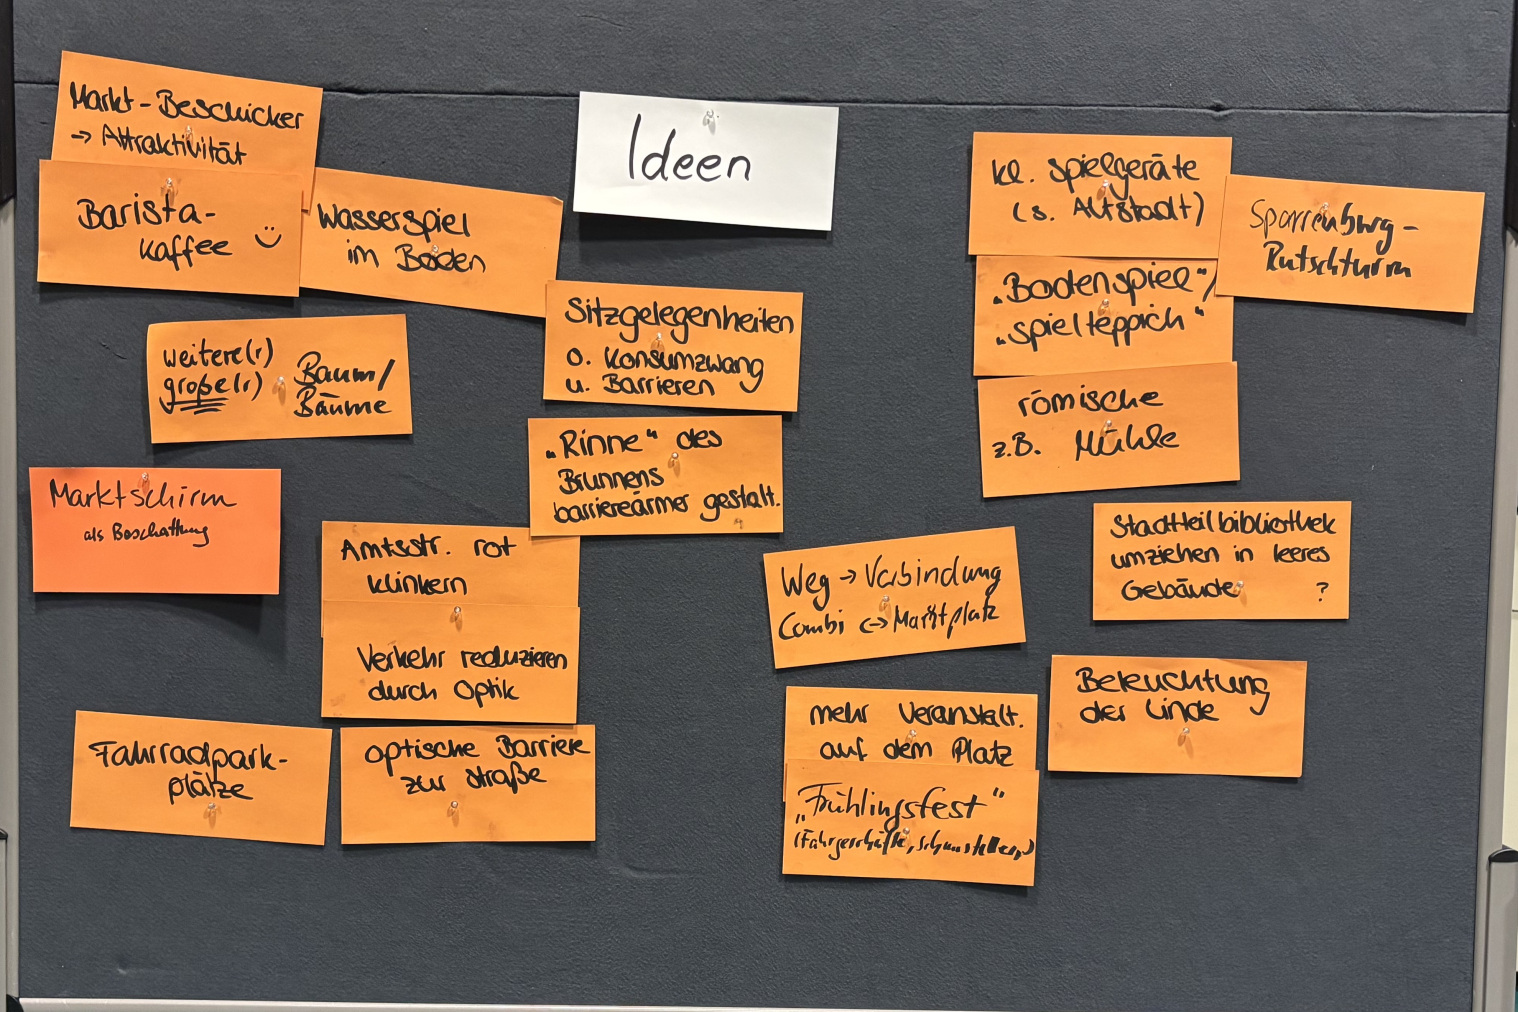 Ideen
Markt-Beschicker
→ Attraktivität
Barista-
kaffee
Wasserspiel
im Boden
weitere(r)
große(r) Baum/
Bäume
Marktschirm
als Beschattung
Sitzgelegenheiten
o. Konsumzwang
u. Barrieren
"Rinne" des
Brunnens
barriereärmer gestalt.
Amtsstr. rot
klinkern
Verkehr reduzieren
durch Optik
Fahrradpark-
plätze
optische Barriere
zur Straße
kl. Spielgeräte
(s. Altstadt)
Sparrenburg-
Rutschturm
"Bodenspiel"/
"Spielteppich"
römische
z.B. Mühle
Stadtteilbibliothek
umziehen in leeres
Gebäude ?
Weg → Verbindung
Combi <-> Marktplatz
Beleuchtung
der Linde
mehr Veranstalt.
auf dem Platz
"Frühlingsfest"
(Fahrgeschäfte, Schausteller,)